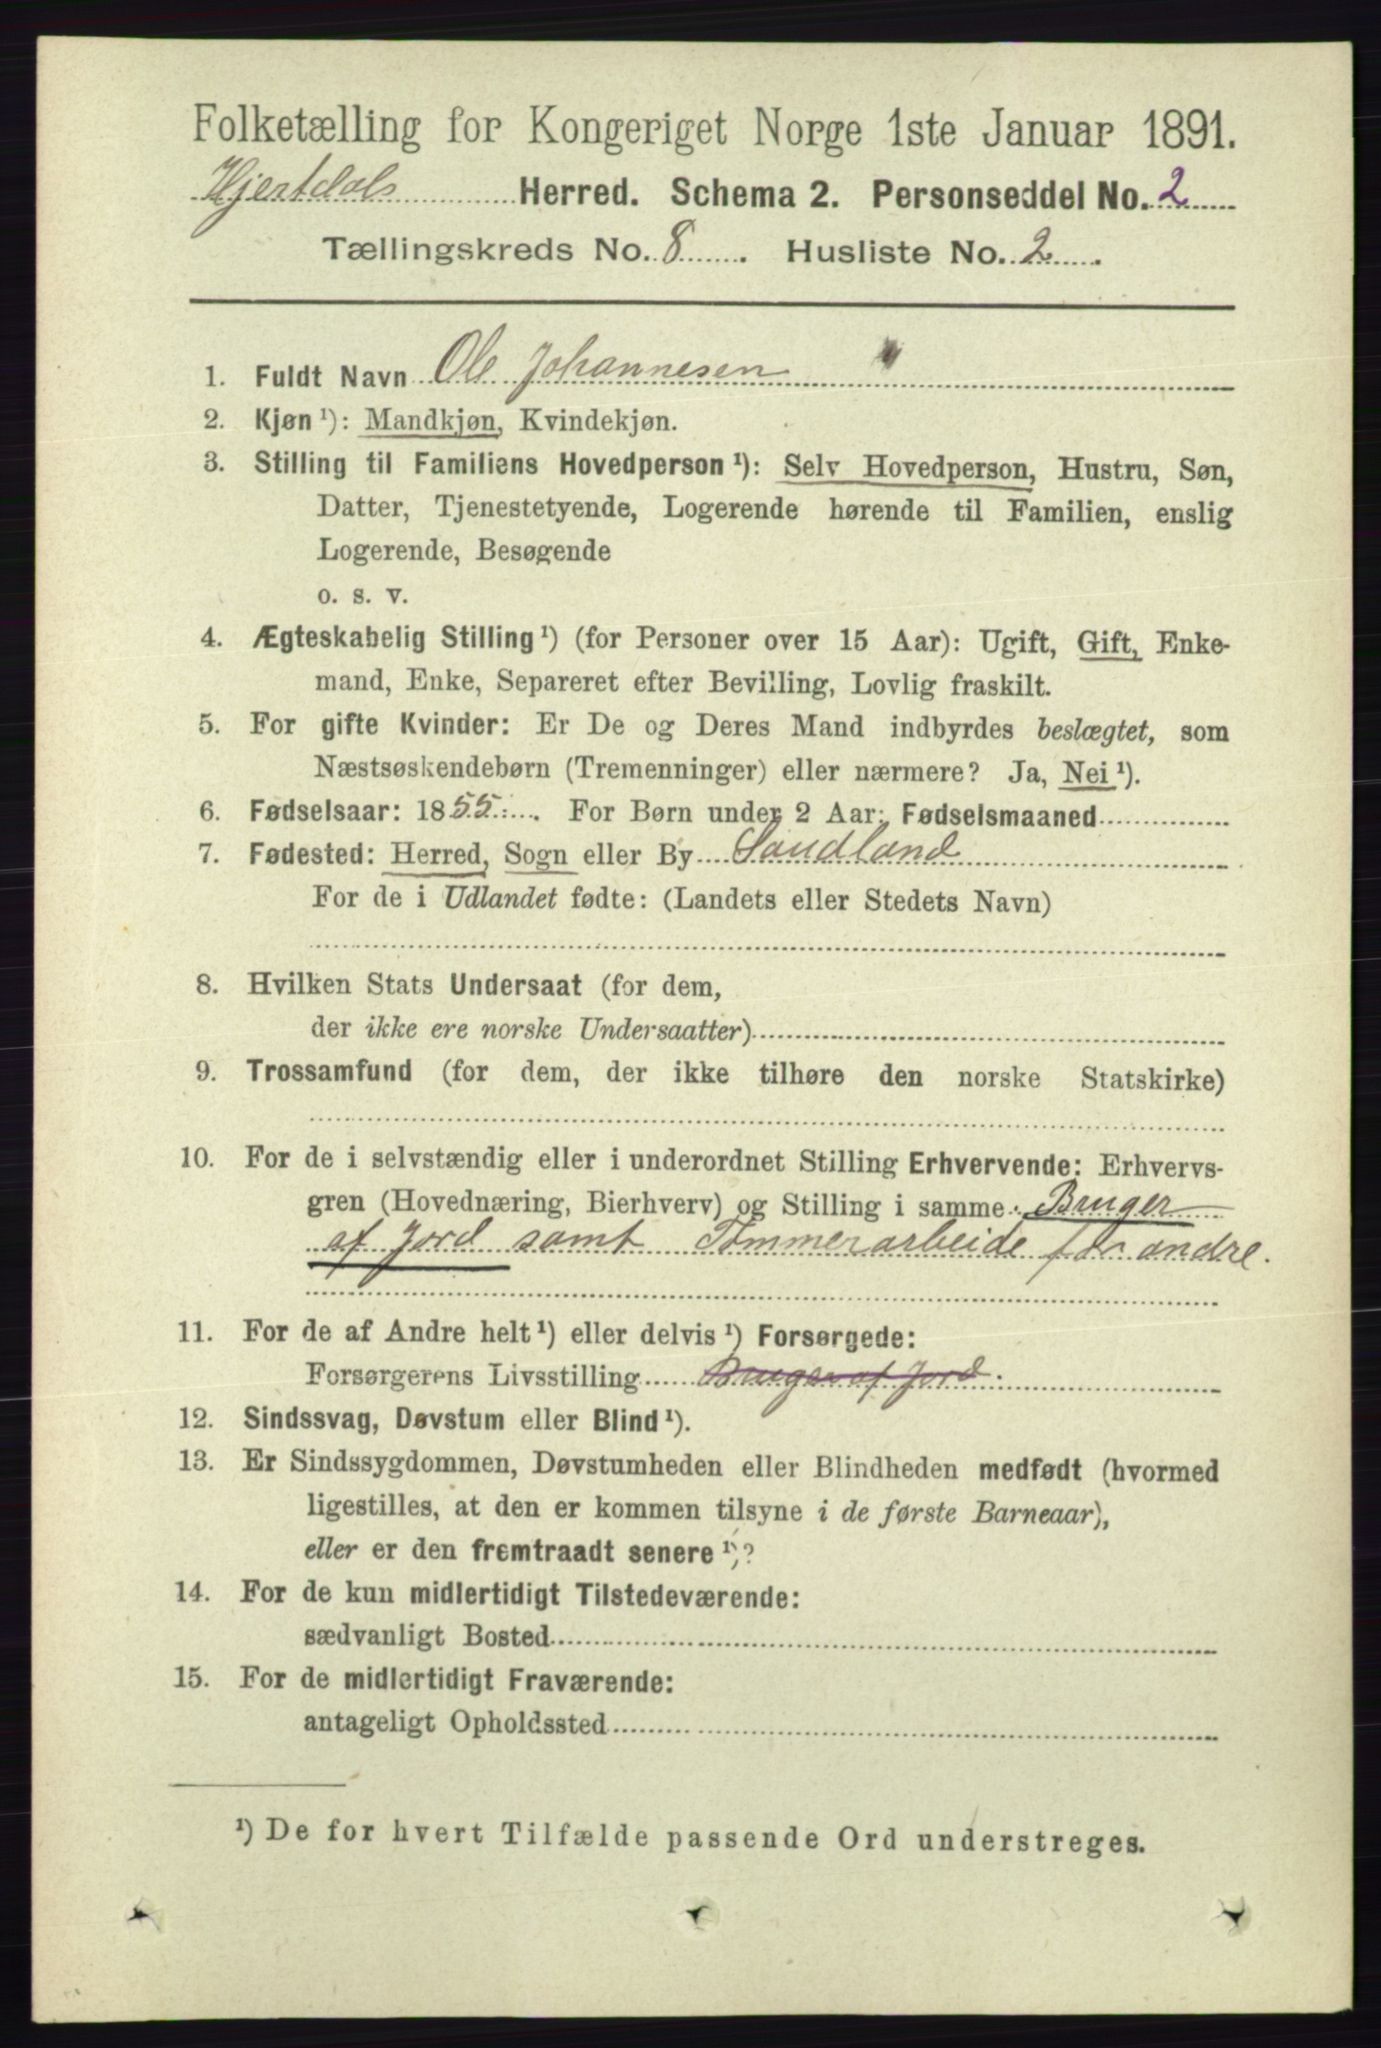 Folketælling for Kongeriget Norge 1ste Januar 1891.
Hjertdals Herred. Schema 2. Personseddel No. 2
Tællingskreds No. 8. Husliste No. 2.
1. Fuldt Navn Ole Johannesen
2. Kjøn ¹): Mandkjøn, Kvindekjøn.
3. Stilling til Familiens Hovedperson ¹): Selv Hovedperson, Hustru, Søn,
Datter, Tjenestetyende, Logerende hørende til Familien, enslig
Logerende, Besøgende
o. s. v.
4. Ægteskabelig Stilling ¹) (for Personer over 15 Aar): Ugift, Gift, Enke-
mand, Enke, Separeret efter Bevilling, Lovlig fraskilt.
5. For gifte Kvinder: Er De og Deres Mand indbyrdes beslægtet, som
Næstsøskendebørn (Tremenninger) eller nærmere? Ja, Nei ¹).
6. Fødselsaar: 1855. For Børn under 2 Aar: Fødselsmaaned
7. Fødested: Herred, Sogn eller By Saudland
For de i Udlandet fødte: (Landets eller Stedets Navn)
8. Hvilken Stats Undersaat (for dem,
der ikke ere norske Undersaatter)
9. Trossamfund (for dem, der ikke tilhøre den norske Statskirke)
10. For de i selvstændig eller i underordnet Stilling Erhvervende: Erhvervs-
gren (Hovednæring, Bierhverv) og Stilling i samme. Bruger
af Jord samt Tømmerarbeide for andre.
11. For de af Andre helt ¹) eller delvis ¹) Forsørgede:
Forsørgerens Livsstilling Bruger af Jord.
12. Sindssvag, Døvstum eller Blind ¹).
13. Er Sindssygdommen, Døvstumheden eller Blindheden medfødt (hvormed
ligestilles, at den er kommen tilsyne i de første Barneaar),
eller er den fremtraadt senere ¹)?
14. For de kun midlertidigt Tilstedeværende:
sædvanligt Bosted
15. For de midlertidigt Fraværende:
antageligt Opholdssted
¹) De for hvert Tilfælde passende Ord understreges.